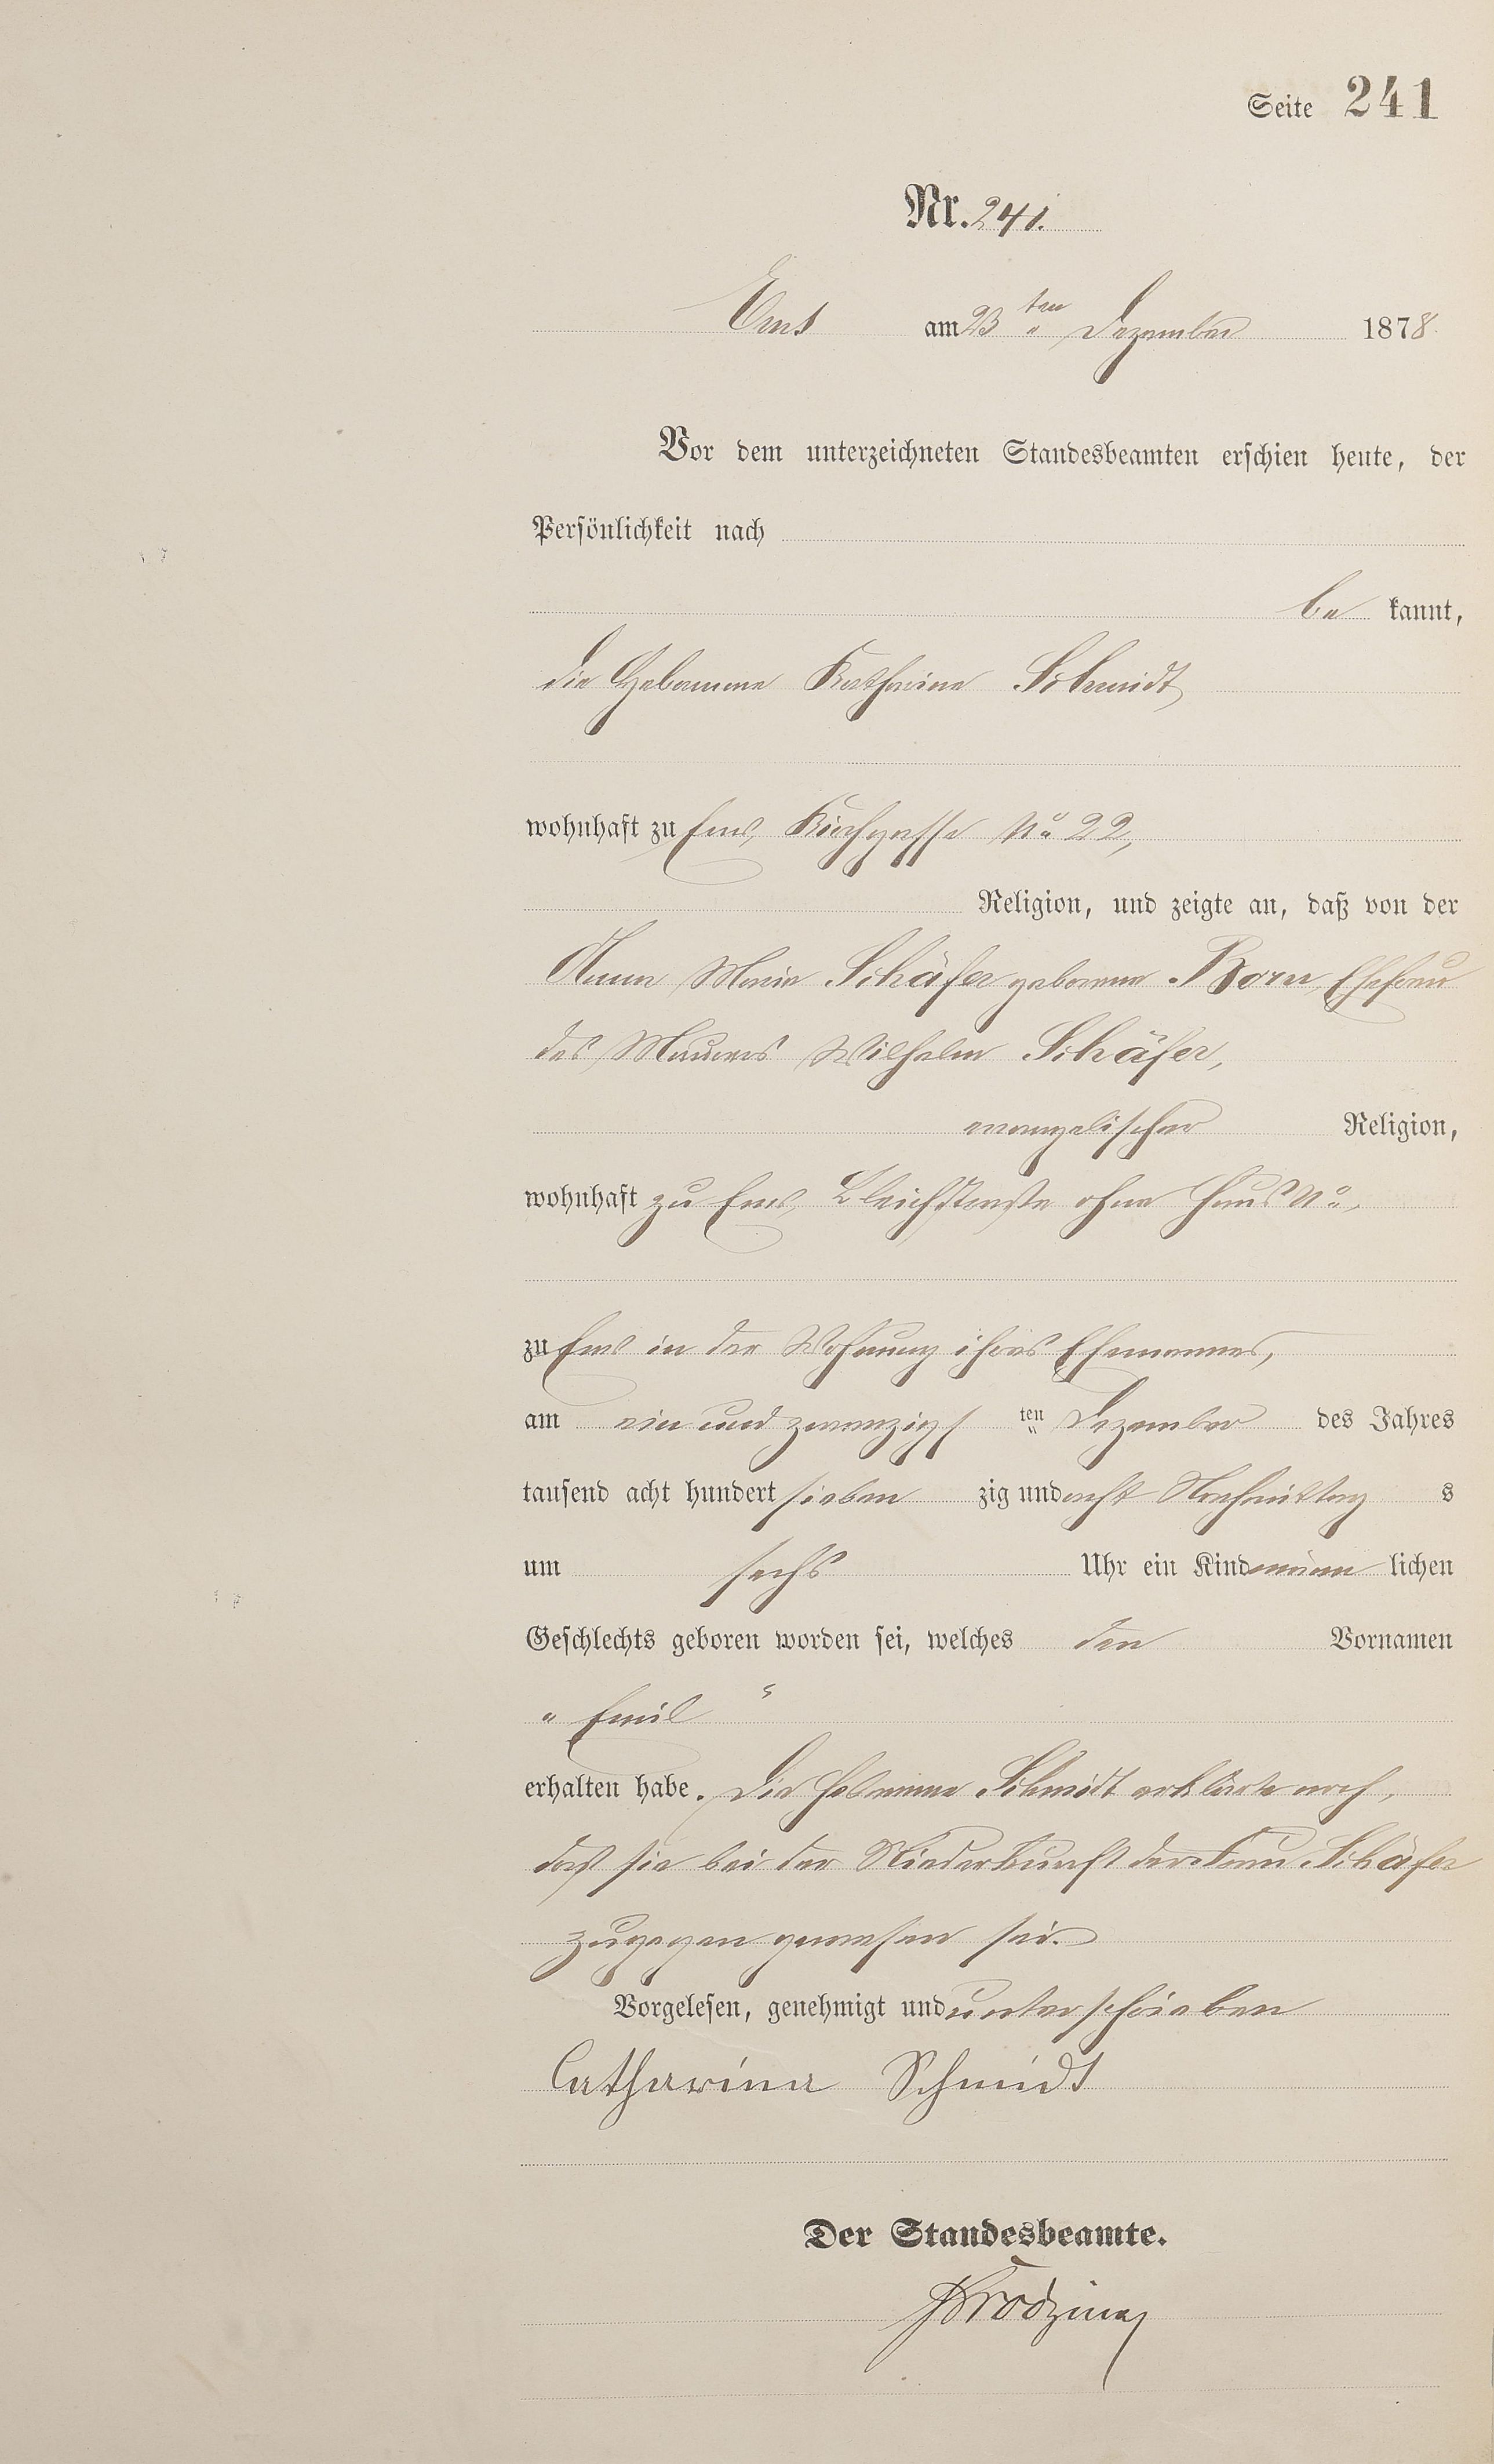 Seite 241
Nr. 241.
Ems am 23ten Dezember 1878.
Vor dem unterzeichneten Standesbeamten erschien heute, der
Persönlichkeit nach
be kannt,
die Hebamme Katharina Schmidt,
wohnhaft zu Ems, Kirchgasse No 22,
Religion, und zeigte an, daß von der
Anna Maria Schäfer geborene Born, Ehefrau
des Maurers Wilhelm Schäfer,
evangelischer Religion,
wohnhaft zu Ems, Bleichstraße ohne Haus No,
zu Ems in der Wohnung ihres Ehemannes,
am ein und zwanzigs ten Dezember des Jahres
tausend acht hundert sieben zig und acht Nachmittag s
um sechs Uhr ein Kind männ lichen
Geschlechts geboren worden sei, welches den Vornamen
"Emil"
erhalten habe. Die Hebamme Schmidt erklärte noch,
daß sie bei der Niederkunft der Frau Schäfer
zugegen gewesen sei.
Vorgelesen, genehmigt und unterschrieben
Catharina Schmidt
Der Standesbeamte.